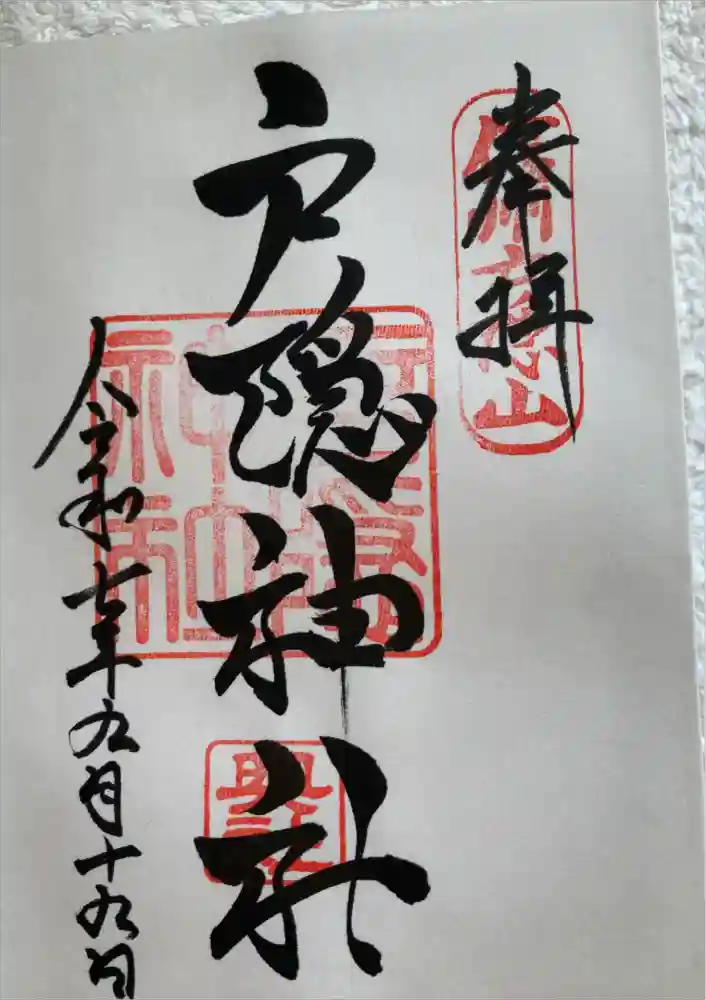 奉拝
戸隠神社
奥社
令和七年九月十九日